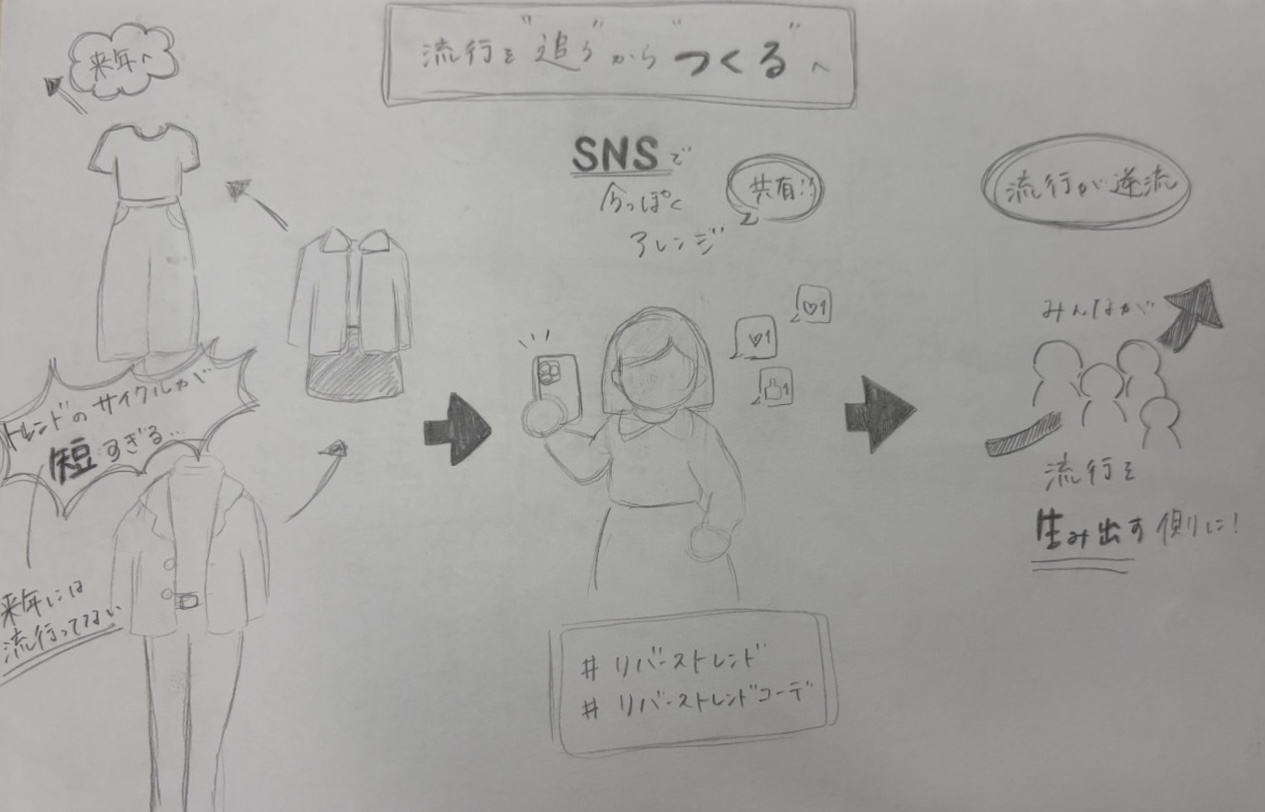 流行を"追う"から"つくる"へ
来年へ
トレンドのサイクルが
短すぎる…
来年には
流行ってない
SNSで
今っぽく
アレンジ
共有!!
♡1
♡1
1
# リバーストレンド
# リバーストレンドコーデ
流行が逆流
みんなが
流行を
生み出す側に!